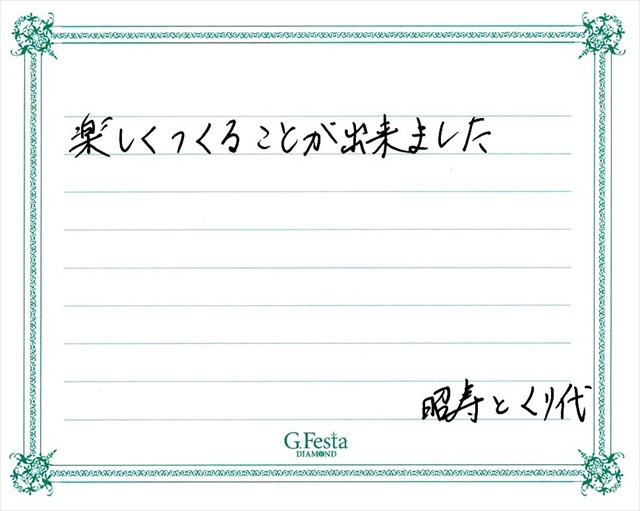 楽しくつくることが出来ました
昭寿とくり代
G.Festa
DIAMOND